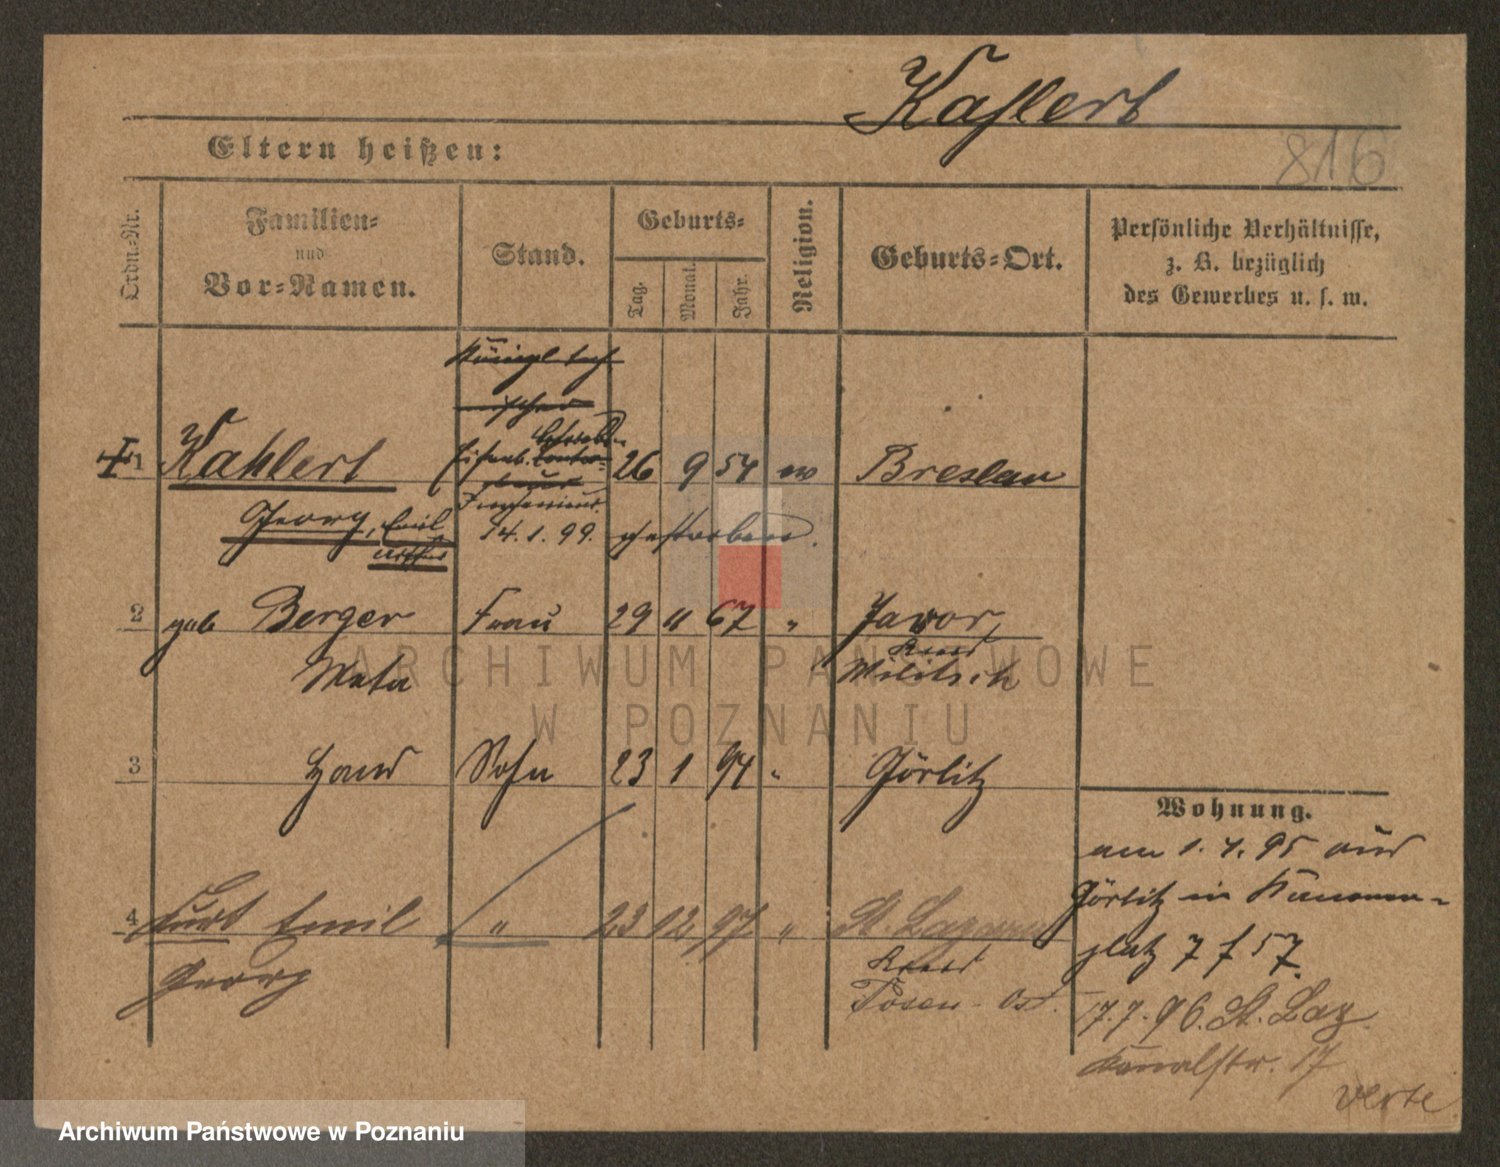 Kahlert
816
Eltern heißen:
Ordn.-Nr.
Familien-
und
Vor-Namen.
Stand.
Geburts-
Tag.
Monat.
Jahr.
Religion.
Geburts-Ort.
Persönliche Verhältnisse,
z. B. bezüglich
des Gewerbes u. s. w.
Königl. tech
nischer
1 Kahlert Eisenb. 26 9 54 ev Breslau
Georg, Emil
Arthur
14. 1. 99. gestorben.
2 geb Berger Frau 29 11 67 " Jawor,
Kreis
Meta Militsch
3 Hans Sohn 23 1 94 " Görlitz
4 Kurt Emil " 23 12 97 " St. Lazarus
Georg
Kreis
Posen-Ost.
Wohnung.
am 1. 4. 95 aus
Görlitz in Kanonen-
platz 7 f 57.
17. 7. 96. St. Laz
Kanalstr. 17
verte
ARCHIWUM PAŃSTWOWE
W POZNANIU
Archiwum Państwowe w Poznaniu